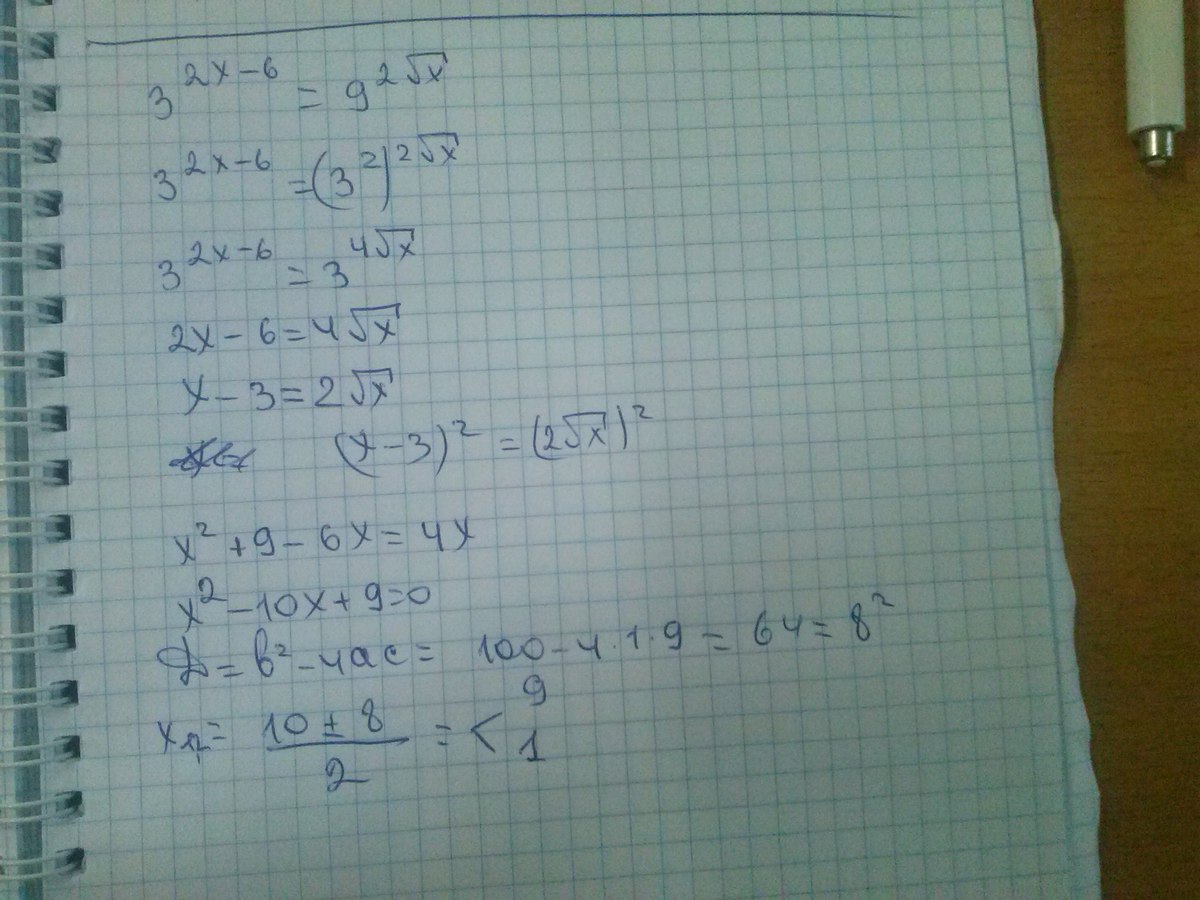 3^{2x-6} = 9^{2√x}
3^{2x-6} = (3^2)^{2√x}
3^{2x-6} = 3^{4√x}
2x-6=4√x
x-3=2√x
(x-3)^2 = (2√x)^2
x^2+9-6x=4x
x^2-10x+9=0
D=b^2-4ac= 100-4·1·9 = 64=8^2
x_{12}= \frac{10±8}{2} = < 9 1